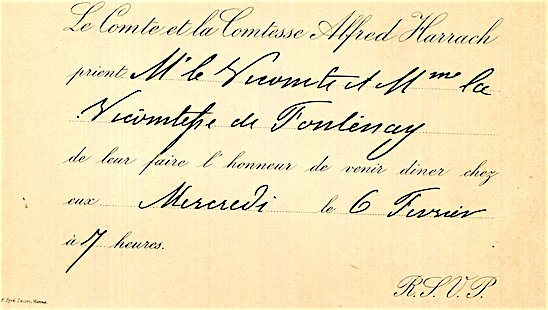 Le Comte et la Comtesse Alfred Harrach
prient Mr le Vicomte et Mme la
Vicomtesse de Fontenay
de leur faire l'honneur de venir dîner chez
eux Mercredi le 6 Février
à 7 heures.
R.S.V.P.